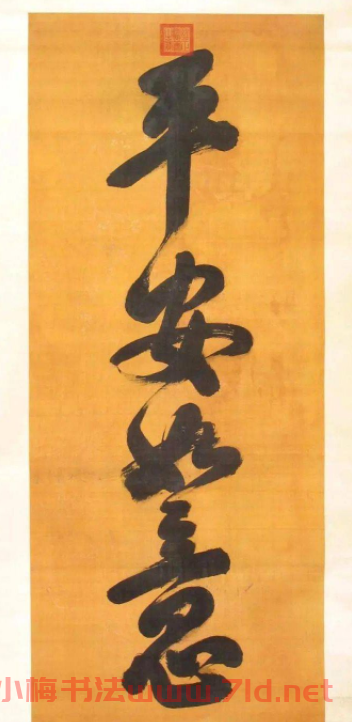 平安如意
小梅书法www.7ld.net